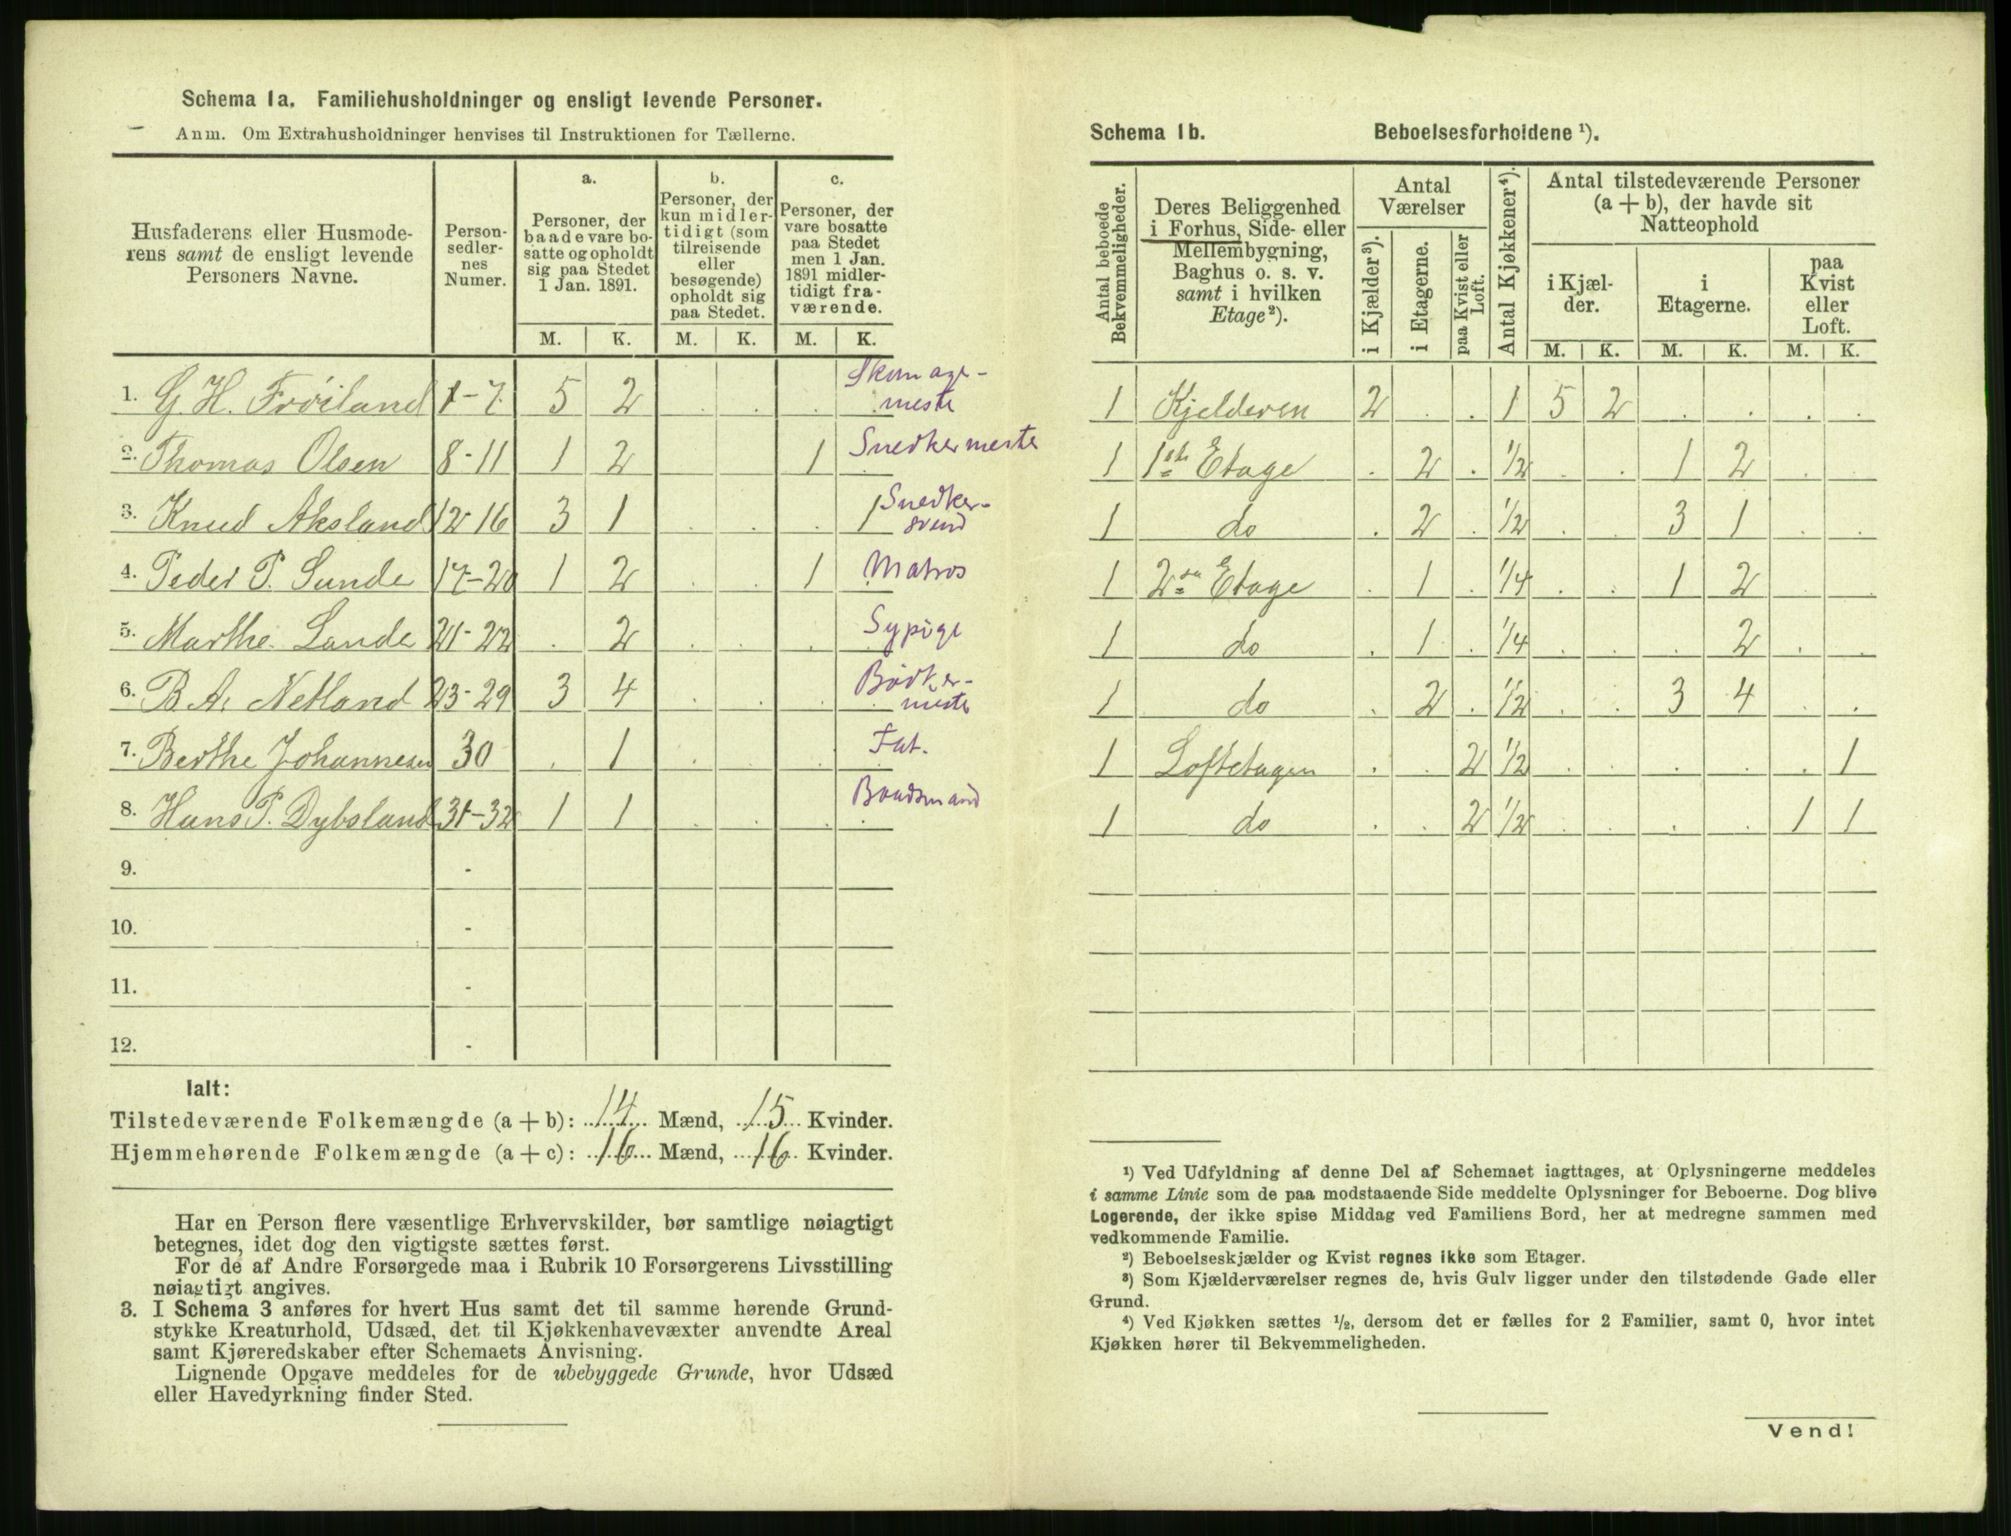 Schema 1a. Familiehusholdninger og ensligt levende Personer.
Anm. Om Extrahusholdninger henvises til Instruktionen for Tællerne.
Husfaderens eller Husmoderens samt de ensligt levende Personers Navne.
Personsedlernes Numer.
a. Personer, der baade vare bosatte og opholdt sig paa Stedet 1 Jan. 1891.
b. Personer, der kun midlertidigt (som tilreisende eller besøgende) opholdt sig paa Stedet.
c. Personer, der vare bosatte paa Stedet men 1 Jan. 1891 midlertidigt fraværende.
M. K. M. K. M. K.
1. G. H. Frøiland 1-7 5 2 . . . . Skomagermeste
2. Thomas Olsen 8-11 1 2 . . 1 . Snedkermeste
3. Knud Aksland 12-16 3 1 . . . 1 Snedkersvend
4. Peder P. Sunde 17-20 1 2 . . 1 . Matros
5. Marthe Lande 21-22 . 2 . . . . Sypige
6. B. A. Netland 23-29 3 4 . . . . Bødkermeste
7. Berthe Johannesen 30 . 1 . . . . Fat.
8. Hans P. Dybsland 31-32 1 1 . . . . Baadsmand
9. -
10. -
11. -
12. -
Ialt:
Tilstedeværende Folkemængde (a + b): 14 Mænd, 15 Kvinder.
Hjemmehørende Folkemængde (a + c): 16 Mænd, 16 Kvinder.
Har en Person flere væsentlige Erhvervskilder, bør samtlige nøiagtigt
betegnes, idet dog den vigtigste sættes først.
For de af Andre Forsørgede maa i Rubrik 10 Forsørgerens Livsstilling
nøiagtigt angives.
3. I Schema 3 anføres for hvert Hus samt det til samme hørende Grund-
stykke Kreaturhold, Udsæd, det til Kjøkkenhavevæxter anvendte Areal
samt Kjøreredskaber efter Schemaets Anvisning.
Lignende Opgave meddeles for de ubebyggede Grunde, hvor Udsæd
eller Havedyrkning finder Sted.
Schema 1b. Beboelsesforholdene ¹).
Antal beboede Bekvemmeligheder.
Deres Beliggenhed i Forhus, Side- eller Mellembygning, Baghus o. s. v. samt i hvilken Etage²).
Antal Værelser
i Kjælder³).
i Etagerne.
paa Kvist eller Loft.
Antal Kjøkkener⁴).
Antal tilstedeværende Personer (a + b), der havde sit Natteophold
i Kjælder.
i Etagerne.
paa Kvist eller Loft.
M. K. M. K. M. K.
1 Kjelderen 2 . . 1 5 2 . . . .
1 1ste Etage . 2 . 1/2 . . 1 2 . .
1 do . 2 . 1/2 . . 3 1 . .
1 2den Etage . 1 . 1/4 . . 1 2 . .
1 do . 1 . 1/4 . . 2 . .
1 do . 2 . 1/2 . . 3 4 . .
1 Loftetagen . . 2 1/2 . . . . . 1
1 do . . 2 1/2 . . . . 1 1
¹) Ved Udfyldning af denne Del af Schemaet iagttages, at Oplysningerne meddeles
i samme Linie som de paa modstaaende Side meddelte Oplysninger for Beboerne. Dog blive
Logerende, der ikke spise Middag ved Familiens Bord, her at medregne sammen med
vedkommende Familie.
²) Beboelseskjælder og Kvist regnes ikke som Etager.
³) Som Kjælderværelser regnes de, hvis Gulv ligger under den tilstødende Gade eller
Grund.
⁴) Ved Kjøkken sættes ½, dersom det er fælles for 2 Familier, samt 0, hvor intet
Kjøkken hører til Bekvemmeligheden.
Vend!